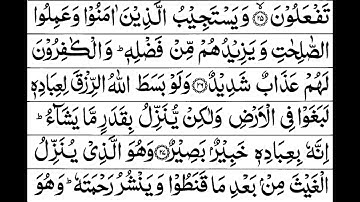 تَفْعَلُوْنَ ﴿٢٥﴾ وَيَسْتَجِيْبُ الَّذِيْنَ اٰمَنُوْا وَعَمِلُوا
الصّٰلِحٰتِ وَيَزِيْدُهُمْ مِّنْ فَضْلِهٖ ؕ وَالْكٰفِرُوْنَ
لَهُمْ عَذَابٌ شَدِيْدٌ ﴿٢٦﴾ وَلَوْ بَسَطَ اللّٰهُ الرِّزْقَ لِعِبَادِهٖ
لَبَغَوْا فِى الْاَرْضِ وَلٰكِنْ يُّنَزِّلُ بِقَدَرٍ مَّا يَشَآءُ ؕ
اِنَّهٗ بِعِبَادِهٖ خَبِيْرٌۢ بَصِيْرٌ ﴿٢٧﴾ وَهُوَ الَّذِىْ يُنَزِّلُ
الْغَيْثَ مِنْۢ بَعْدِ مَا قَنَطُوْا وَيَنْشُرُ رَحْمَتَهٗ ؕ وَهُوَ